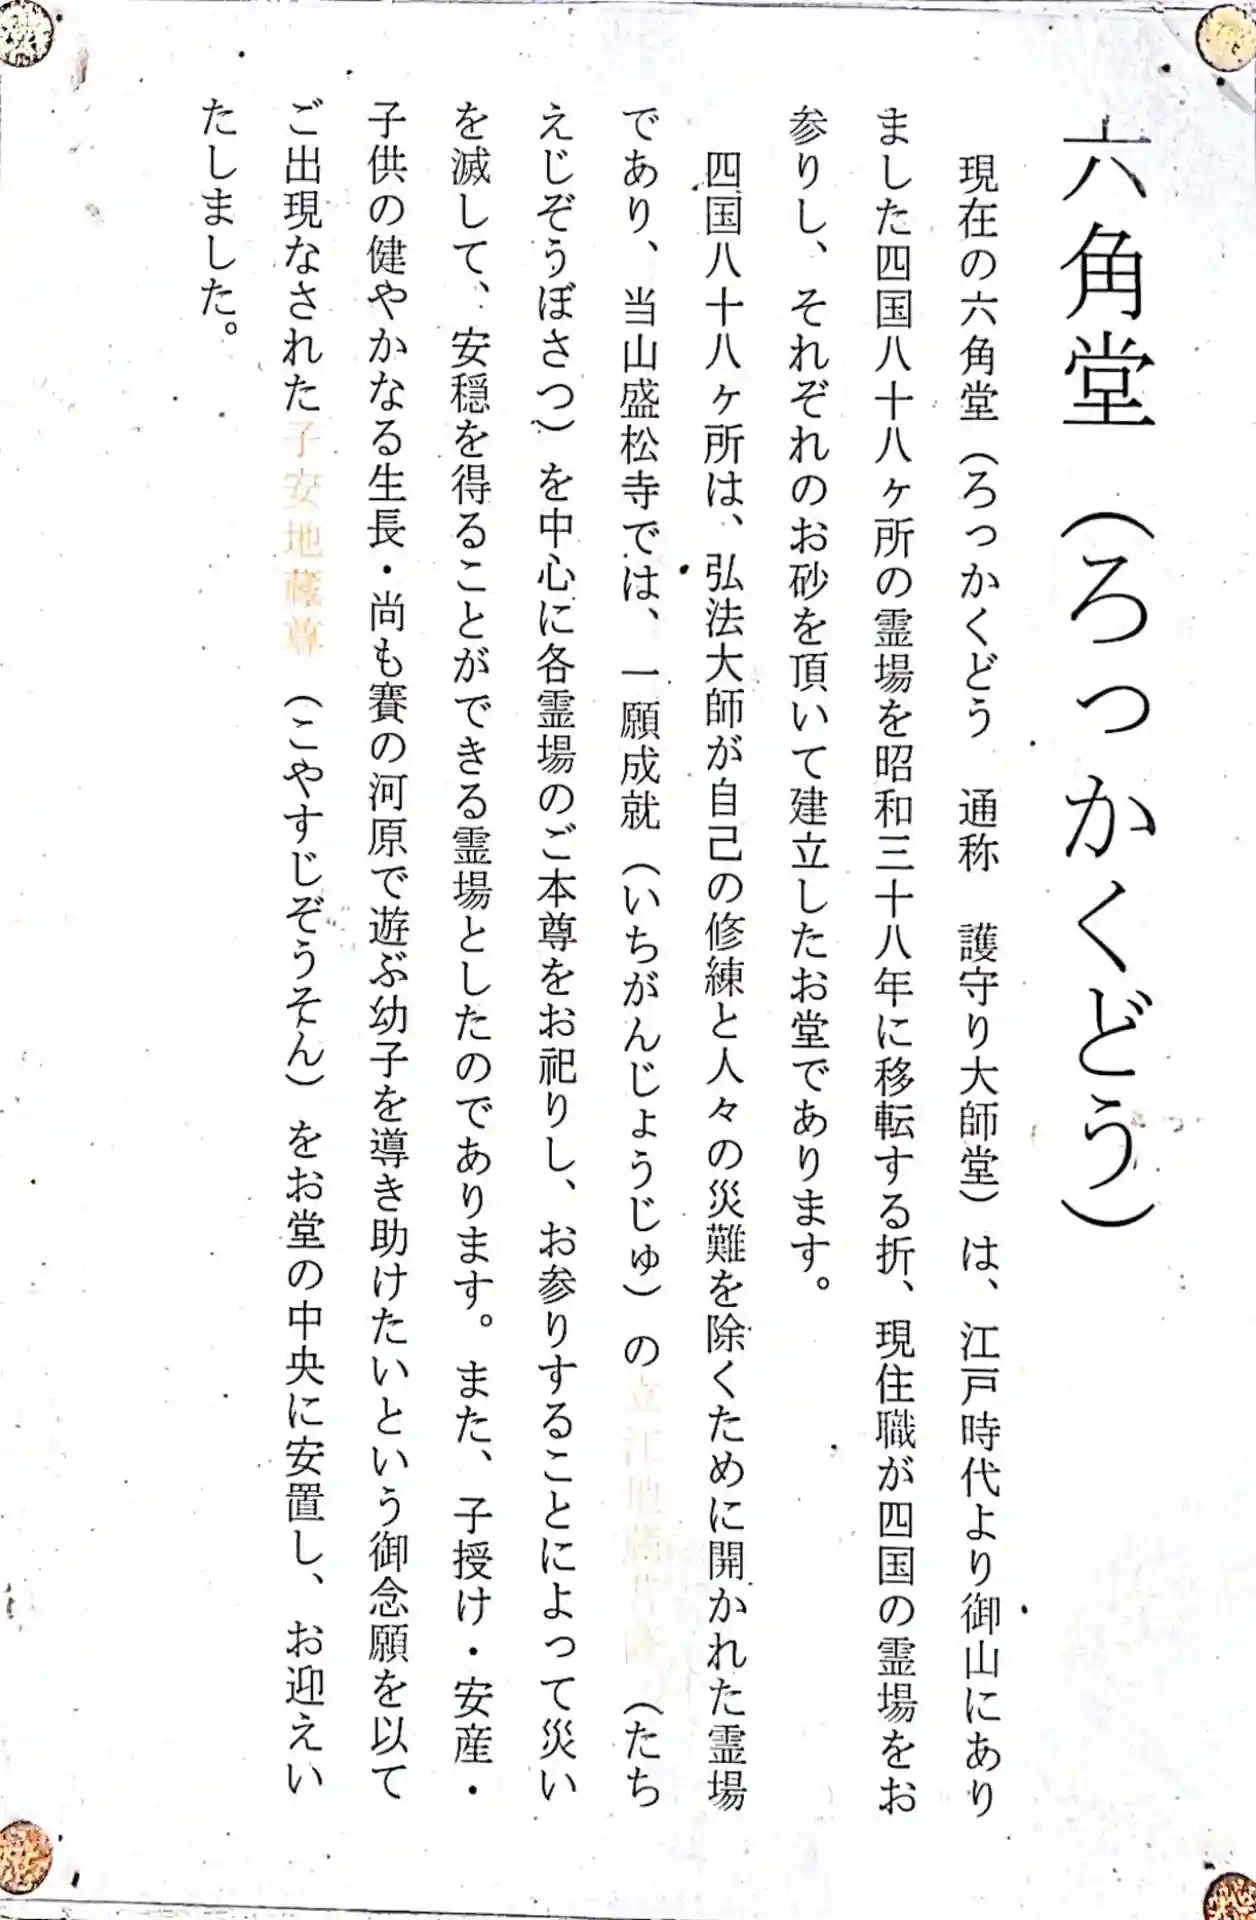 六角堂（ろっかくどう）
現在の六角堂（ろっかくどう　通称　護守り大師堂）は、江戸時代より御山にあり
ました四国八十八ヶ所の霊場を昭和三十八年に移転する折、現住職が四国の霊場をお
参りし、それぞれのお砂を頂いて建立したお堂であります。
四国八十八ヶ所は、弘法大師が自己の修練と人々の災難を除くために開かれた霊場
であり、当山盛松寺では、一願成就（いちがんじょうじゅ）の立江地蔵菩薩（たち
えじぞうぼさつ）を中心に各霊場のご本尊をお祀りし、お参りすることによって災い
を滅して、安穏を得ることができる霊場としたのであります。また、子授け・安産・
子供の健やかなる生長・尚も賽の河原で遊ぶ幼子を導き助けたいという御念願を以て
ご出現なされた子安地蔵尊（こやすじぞうそん）をお堂の中央に安置し、お迎えい
たしました。